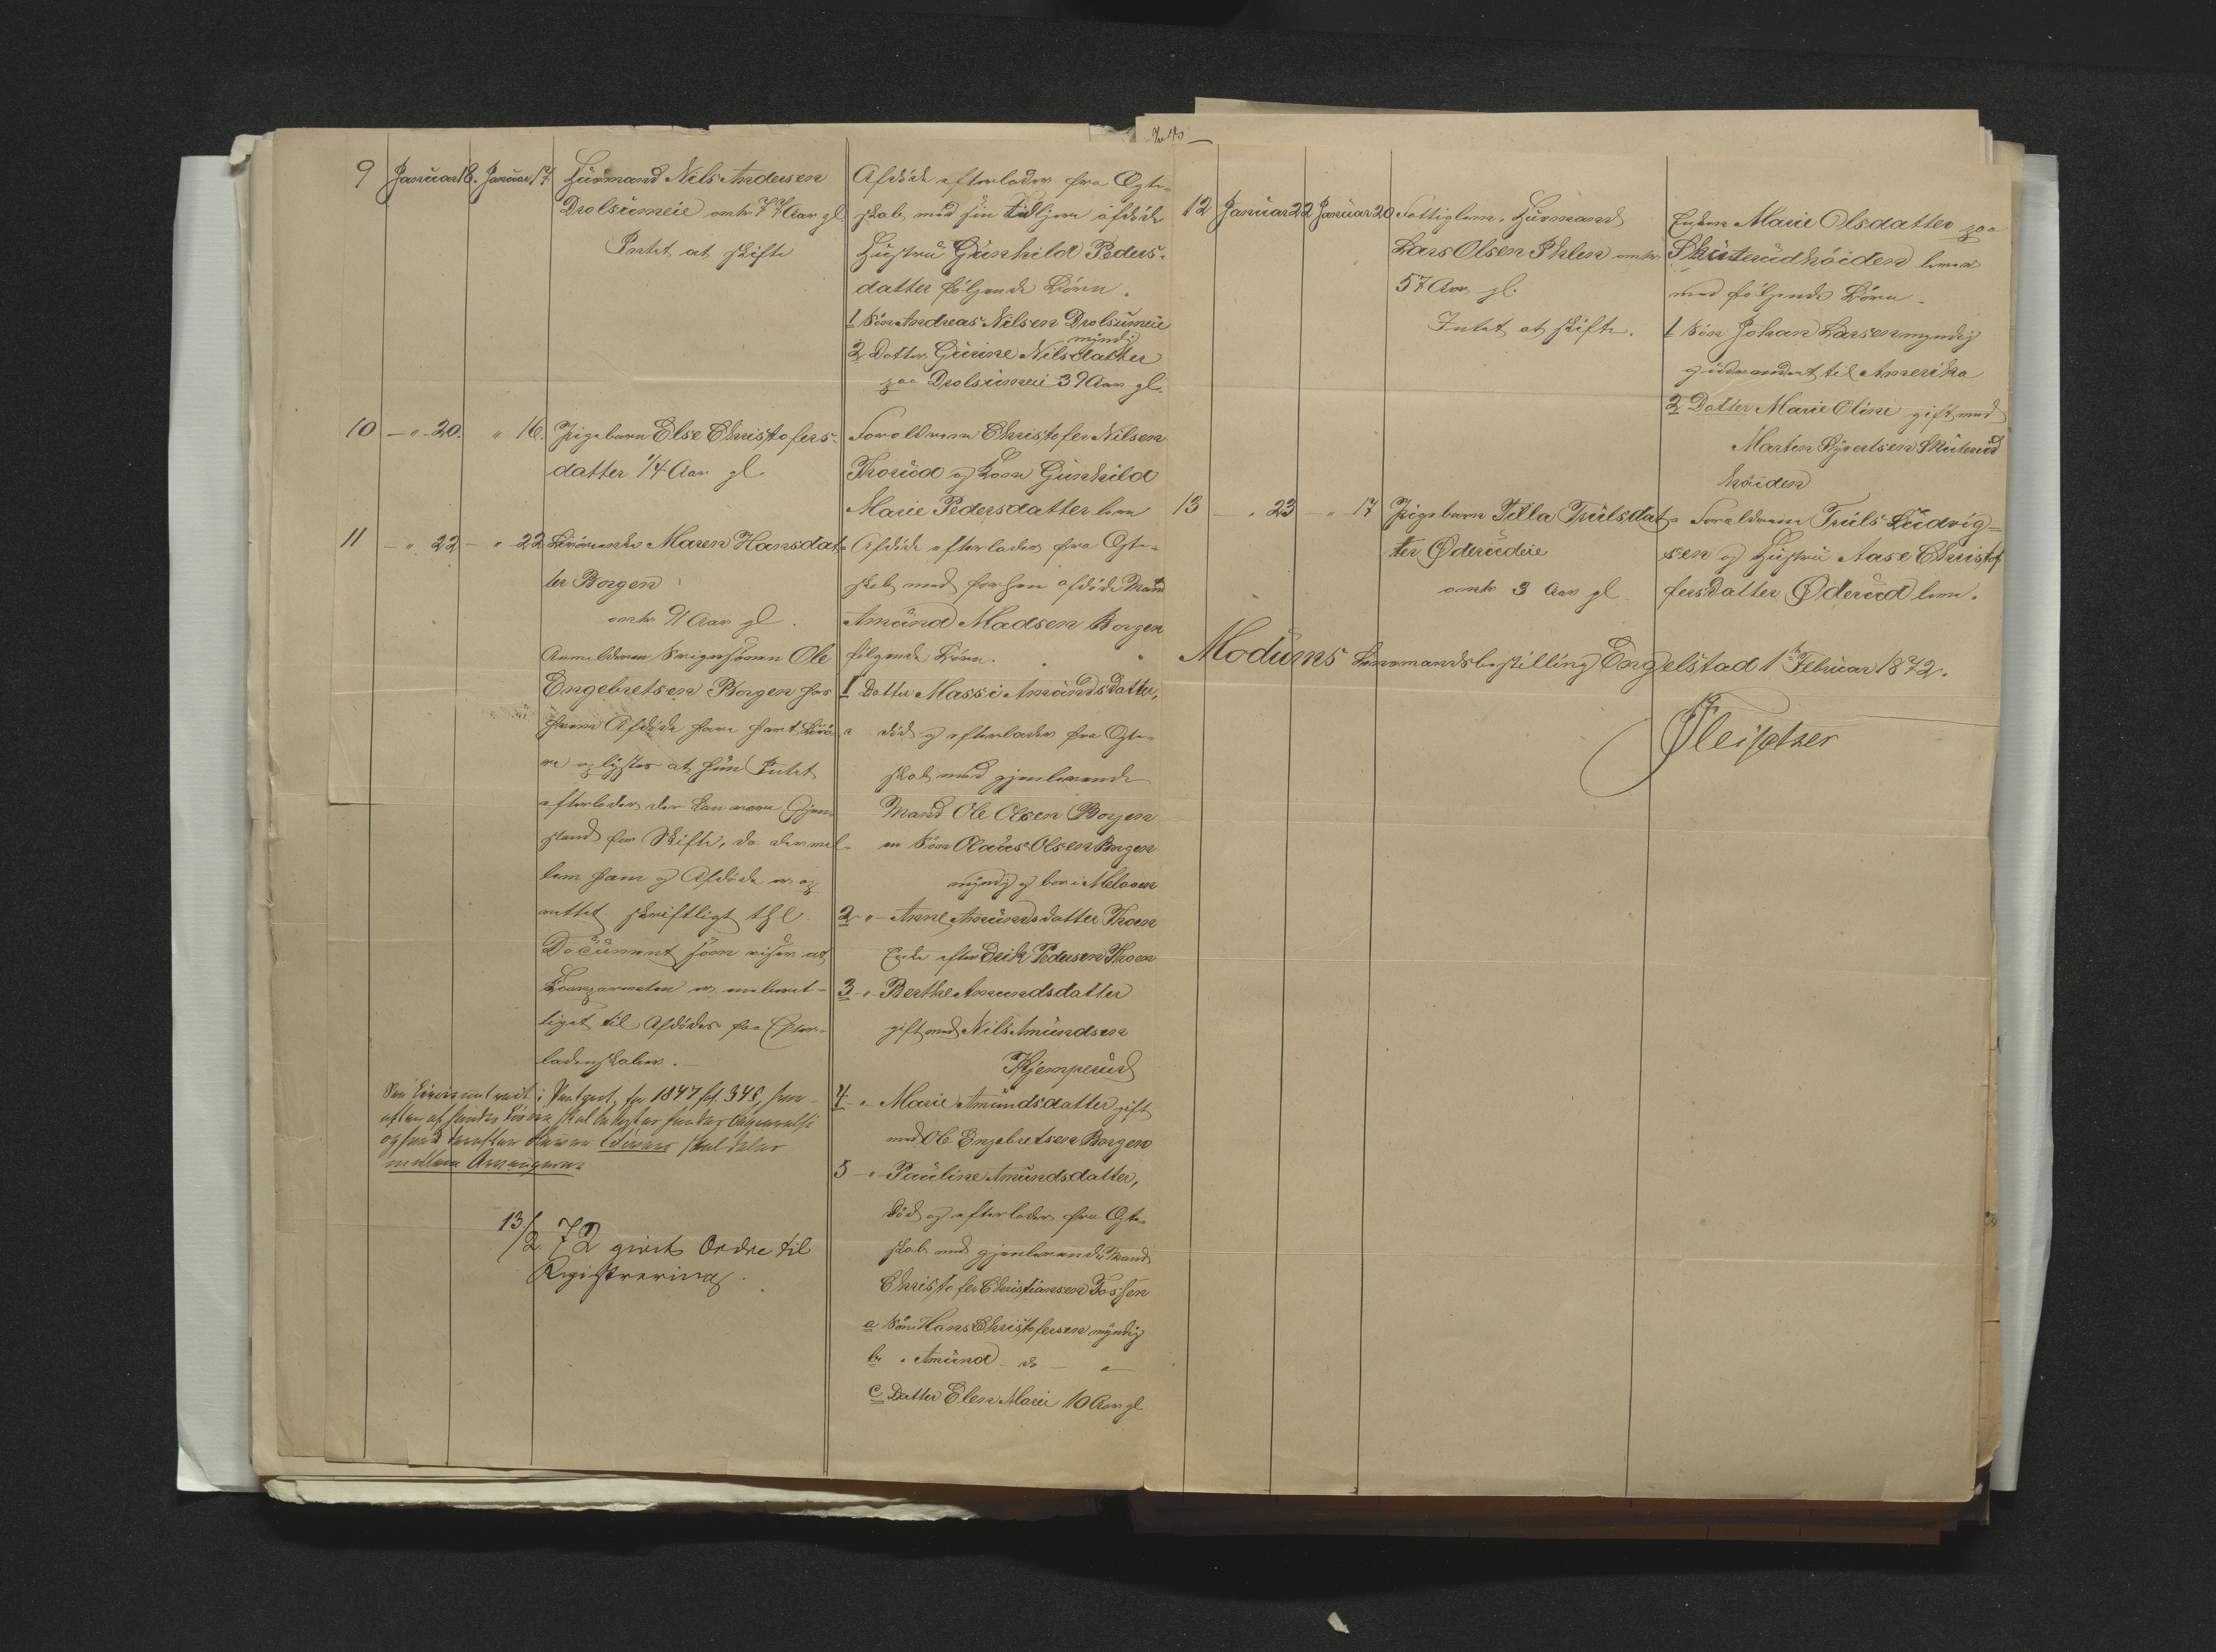 9 Januar 18. Januar 17. Huusmand Nils Andersen
Drolsumeie omtr 77 Aar gl
Intet at skifte
Afdöde efterlader fra Ægte-
skab med sin tidligere afdöde
Hustru Gunhild Peders-
datter fölgende Börn.
1 Sön Andreas Nilsen Drolsumeie
myndig
2 Datter Gurine Nilsdatter
paa Drolsumeie 39 Aar gl.
10 - " - 20. " 16. Pigebarn Else Christofers-
datter 1/4 Aar gl
Forældrene Christofer Nilsen
Thorud og Kone Gunhild
Marie Pedersdatter leve
11 - " 22 - " 22 Maren Hansdat-
ter Borgen
omtr 91 Aar gl.
Anmelderen Svigersönnen Ole
Engebretsen Borgen hos
hvem Afdöde have havt
oplyster at hun Intet
efterlader der kan være Gjen-
stand for Skifte, da der mel-
lem ham og Afdöde er op
rettet skriftligt thgl.
Document som viser at
er
til Afdödes Efter-
ladenskaber.
Afdöde efterlader fra Ægte-
skab med forhen afdöde Mand
Amund Madsen Borgen
fölgende Börn.
1 Datter Massi Amundsdatter,
död og efterlader fra Ægte-
skab med gjenlevende
Mand Ole Olsen Borgen
en Sön Olaus Olsen Borgen
myndig og bor i Meloen
2 - " - Anne Amundsdatter Thoen
Enke efter Erik Pedersen Thoen
3 - " - Berthe Amundsdatter
gift med Nils Amundsen
Kjemperud
4 - " Marie Amundsdatter gift
med Ole Engebretsen Borgen
5 - " - Pauline Amundsdatter,
död og efterlader fra Ægte-
skab med gjenlevende Mand
Christofer Christiansen Fossen
a Sön Hans Christofersen myndig
b " Amund - do - "
c Datter Elen Marie 10 Aar gl
i Pantprot. for 1847 fol. 348,
af hendes skal
og skal deles
mellem Arvingerne
13/2 72 givet Ordre til
Registrering.
12 Januar 22 Januar 20 Fattiglem. Huusmand
Lars Olsen Ihlen omtr
57 Aar gl.
Intet at skifte.
Enken Marie Olsdatter paa
Skuterudhöiden lever
med fölgende Börn.
1 Sön Johan Larsen myndig
udvandret til Amerika
2 Datter Marie Oline gift med
Marten Syvertsen Skuterud
höiden
13 - " 23 - " 17 Pigebarn Tilla Trulsdat-
ter Öderudeie
omtr 3 Aar gl.
Forældrene Truls Ludvig-
sen og Hustru Aase Christof
fersdatter Öderud leve.
Modums Lensmandsbestilling Engelstad 1ste Februar 1872.
Fleischer